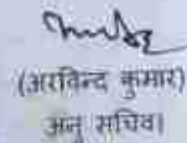 (अरविन्द कुमार)
अनु सचिव।